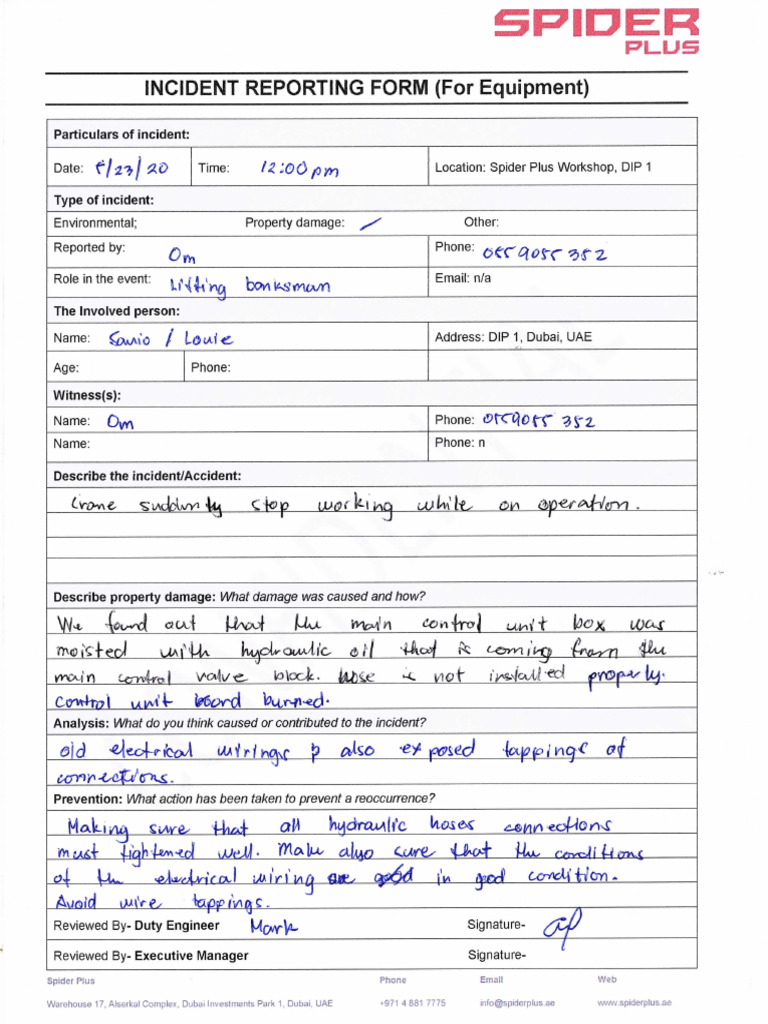 SPIDER
PLUS
INCIDENT REPORTING FORM (For Equipment)
Particulars of incident:
Date: /23/20 Time: 12:00pm Location: Spider Plus Workshop, DIP 1
Type of incident:
Environmental; Property damage: / Other:
Reported by: Om Phone: 0559055 352
Role in the event: Lifting banksman Email: n/a
The Involved person:
Name: / Louie Address: DIP 1, Dubai, UAE
Age: Phone:
Witness(s):
Name: Om Phone: 0559055 352
Name: Phone: n
Describe the incident/Accident:
Crane stop working while on operation.
Describe property damage: What damage was caused and how?
We found out that the main control unit box was
moisted with hydraulic oil that is coming from the
main control valve block. hose is not installed properly.
Control unit board burned.
Analysis: What do you think caused or contributed to the incident?
old electrical wirings also exposed tappings of
connections.
Prevention: What action has been taken to prevent a reoccurrence?
Making sure that all hydraulic hoses connections
must tightened well. Make also sure that the conditions
of the electrical wiring in good condition.
Avoid wire tappings.
Reviewed By- Duty Engineer Mark Signature-
Reviewed By- Executive Manager Signature-
Spider Plus Phone Email Web
Warehouse 17, Alserkal Complex, Dubai Investments Park 1, Dubai, UAE +971 4 881 7775 info@spiderplus.ae www.spiderplus.ae